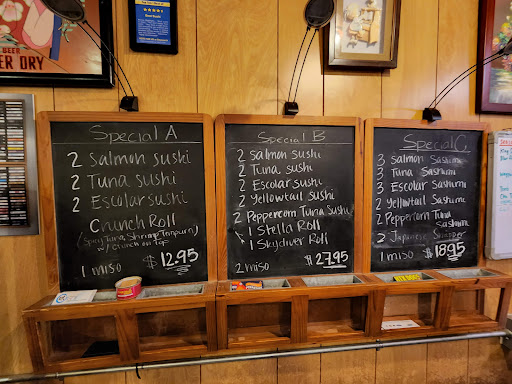 BEER
ER DRY
Special A
2 Salmon Sushi
2 Tuna Sushi
2 Escolar Sushi
Crunch Roll
(Spicy Tuna, Shrimp Tempura)
w/ Crunch on Top
1 miso $12.95
Special B
2 Salmon Sushi
2 Tuna Sushi
2 Escolar Sushi
2 Yellowtail Sushi
2 Peppercorn Tuna Sushi
1 Stella Roll
1 Skydiver Roll
2 miso $27.95
Special C
3 Salmon Sashimi
3 Tuna Sashimi
3 Escolar Sashimi
2 Yellowtail Sashimi
2 Peppercorn Tuna
Sashimi
2 Japanese Snapper
1 miso $18.95